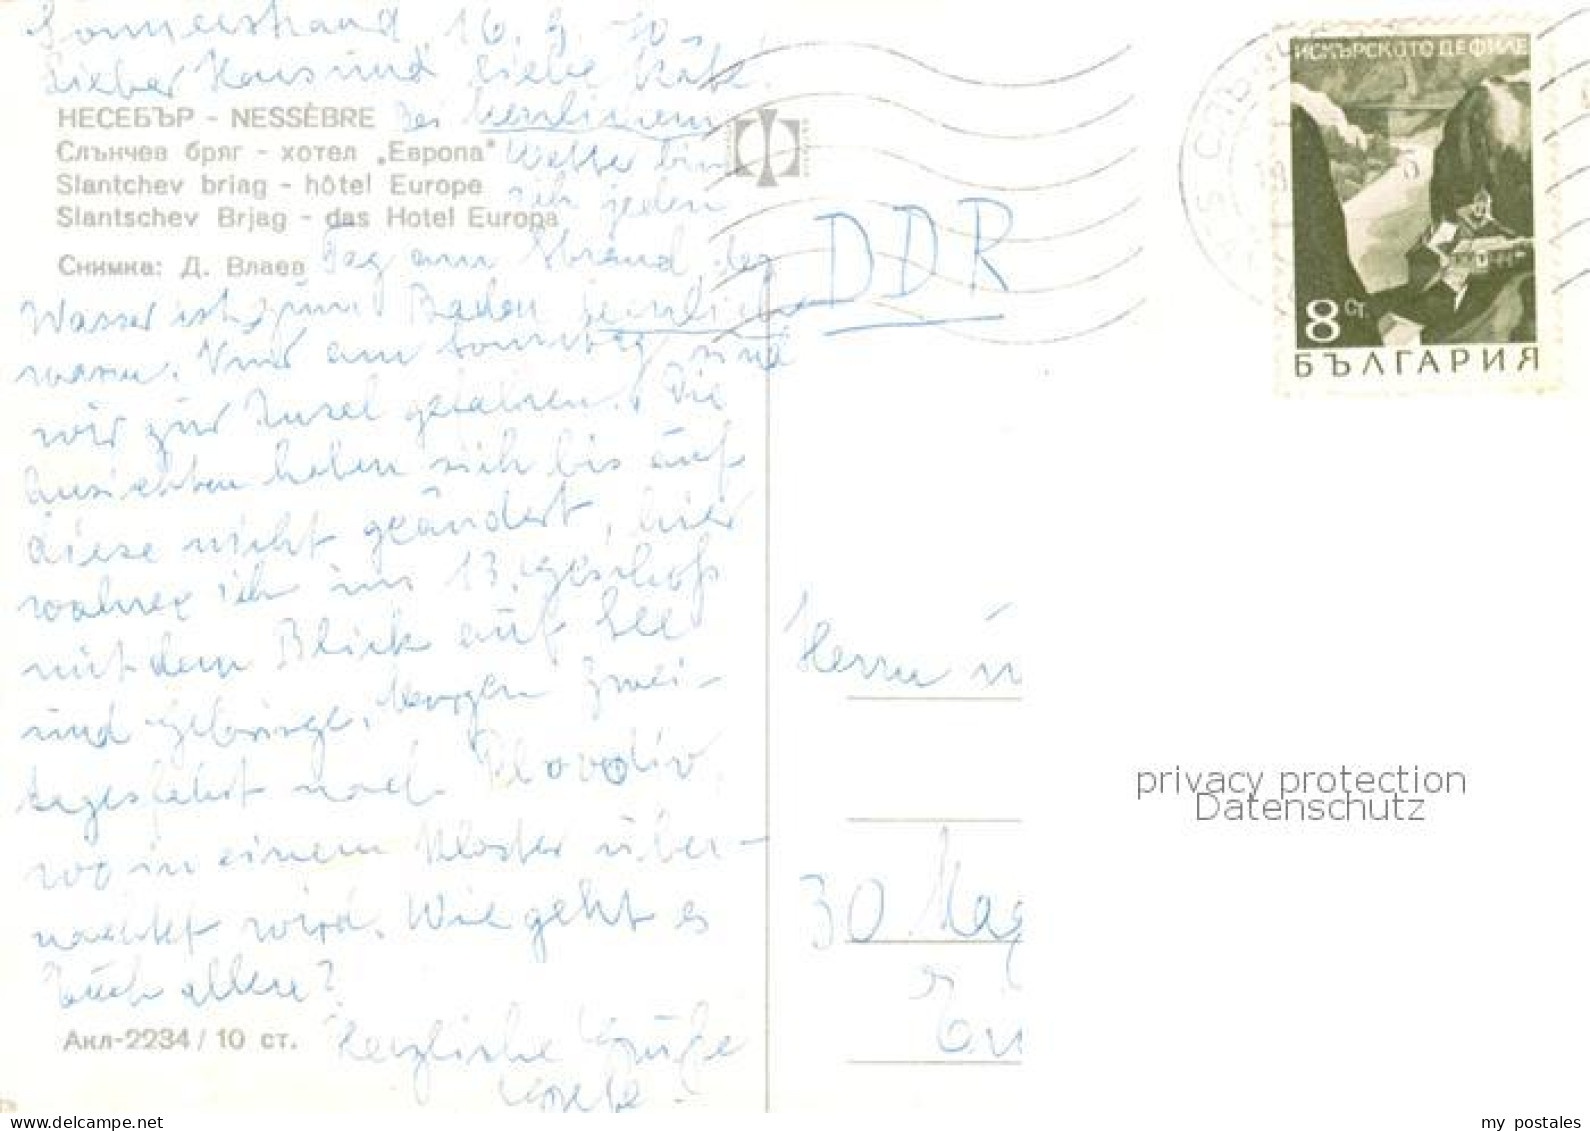 Sonnenstrand, 16. 9. 70
Lieber Hans und liebe Käte.
НЕСЕБЪР - NESSÈBRE
Bei herrlichem
Слънчев бряг - хотел „Европа"
Wetter bin
Slantchev briag - hôtel Europe
ich jeden
Slantschev Brjag - das Hotel Europa
Снимка: Д. Влаев
Tag am Strand, das
Wasser ist zum Baden herrlich
warm. Und am Sonntag sind
wir zur Insel gefahren. Die
Ansichten haben sich bis auf
diese nicht geändert, hier
wohne ich im 13. Geschoß
mit dem Blick auf See
und Gebirge. Morgen Zwei-
tagesfahrt nach Plovdiv
wo in einem Kloster über-
nachtet wird. Wie geht es
Euch allen?
Акл-2234 / 10 ст.
Herzliche Grüße
DDR
Herrn u
30 Mag
ИСКЪРСКОТО ДЕФИЛЕ
8 СТ.
БЪЛГАРИЯ
privacy protection
Datenschutz
www.delcampe.net
my_postales